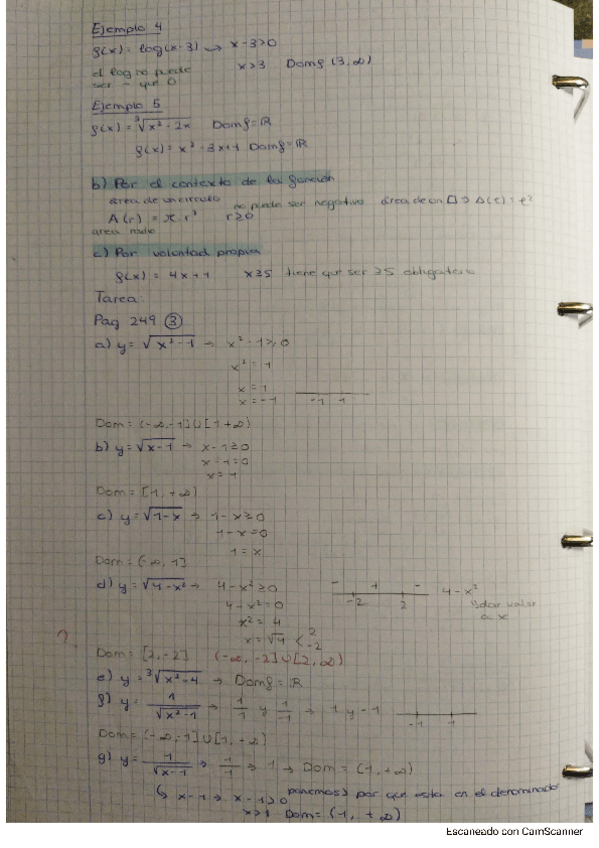 Ejemplo 4
f(x) = log(x-3) → x-3>0
x>3 Domf (3,∞)
el log no puede
ser - que 0
Ejemplo 5
f(x) = ³√x²-2x Domf = ℝ
f(x) = x² - 3x+1 Domf = ℝ
b) Por el contexto de la función
área de un círculo no puede ser negativo área de un □ → A(e) = e²
A(r) = π·r² r≥0
área radio
c) Por voluntad propia
f(x) = 4x+1 x≥5 tiene que ser ≥5 obligatorio
Tarea:
Pag 249 ③
a) y = √x²-1 → x²-1≥0
x² = 1
x = 1
x = -1 -1 1
Dom = (-∞,-1]∪[1+∞)
b) y = √x-1 → x-1≥0
x-1=0
x=1
Dom = [1,+∞)
c) y = √1-x → 1-x≥0
1-x=0
1=x
Dom = (-∞,1]
d) y = √4-x² → 4-x²≥0 - + - 4-x²
4-x²=0 -2 2 dar valor
x² = 4 a x
x = √4 < 2
-2
? Dom = [2,-2] (-∞,-2]∪[2,∞)
e) y = ³√x²-4 → Domf = ℝ
f) y = 1/√x²-1 → 1/1 y 1/-1 → 1 y -1 -1 1
Dom = (-∞,-1]∪[1,-∞)
g) y = 1/√x-1 → 1/1 → 1 → Dom = (1,+∞)
↳ x-1 → x-1>0 ponemos > por que esta en el denominado
x>1 Dom = (1, +∞)
Escaneado con CamScanner